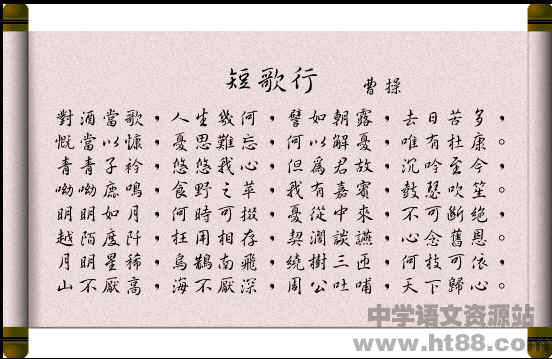 短歌行 曹操
對酒當歌，人生幾何，譬如朝露，去日苦多，
慨當以慷，憂思難忘，何以解憂，唯有杜康。
青青子衿，悠悠我心，但為君故，沉吟至今，
呦呦鹿鳴，食野之苹，我有嘉賓，鼓瑟吹笙。
明明如月，何時可掇，憂從中來，不可斷絕，
越陌度阡，枉用相存，契濶談讌，心念舊恩。
月明星稀，烏鵲南飛，繞樹三匝，何枝可依，
山不厭高，海不厭深，周公吐哺，天下歸心。
中学语文资源站
www.ht88.com